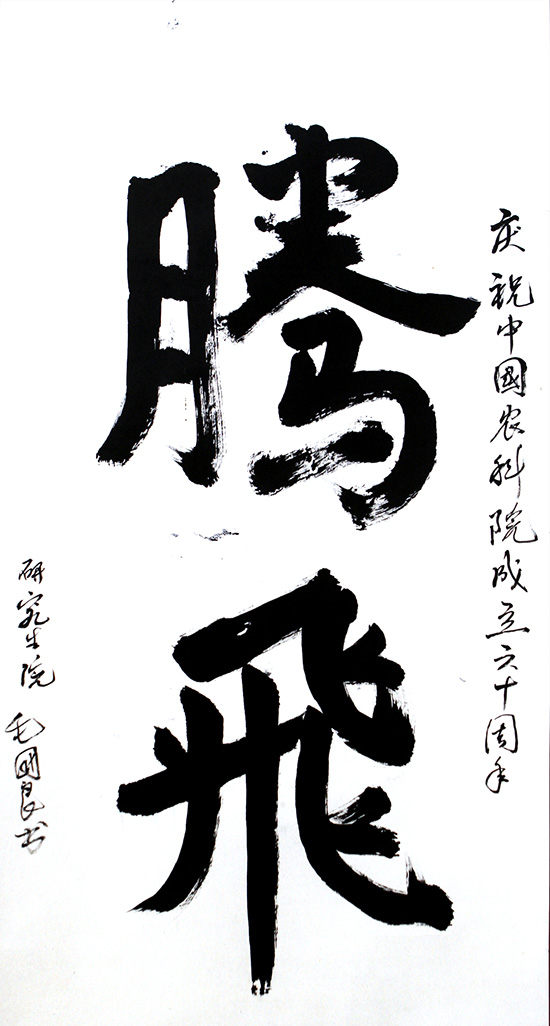 庆祝中國农科院成立六十周年
腾飛
研究生院 毛國良书